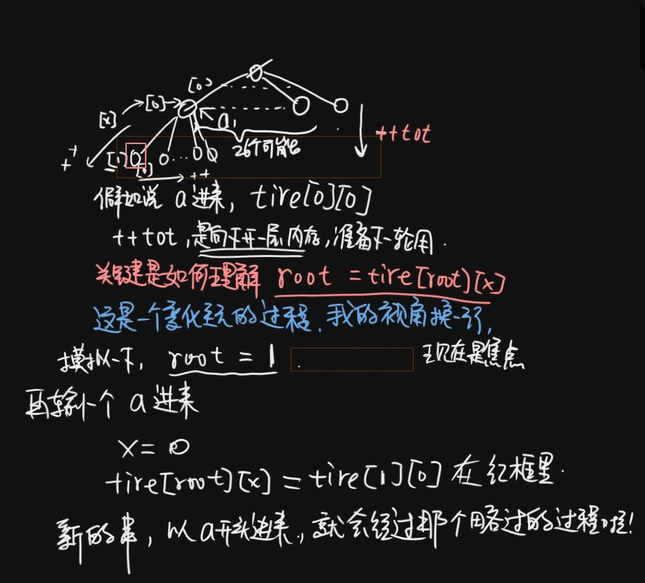 [0]
[x] [0]
a,
++tot
+1 [1] 0 0...00 26个可能
[0] ++
假如说 a 进来, tire[0][0]
++tot, 是向下开一层内存, 准备下一轮用.
关键是如何理解 root = tire[root][x]
这是一个变化至元的过程, 我的视角换一行,
模拟一下, root = 1 . 现在是焦点
再输个 a 进来
x = 0
tire[root][x] = tire[1][0] 在红框里.
新的串, 以a开头进来, 就会经过那个略过的过程啦!